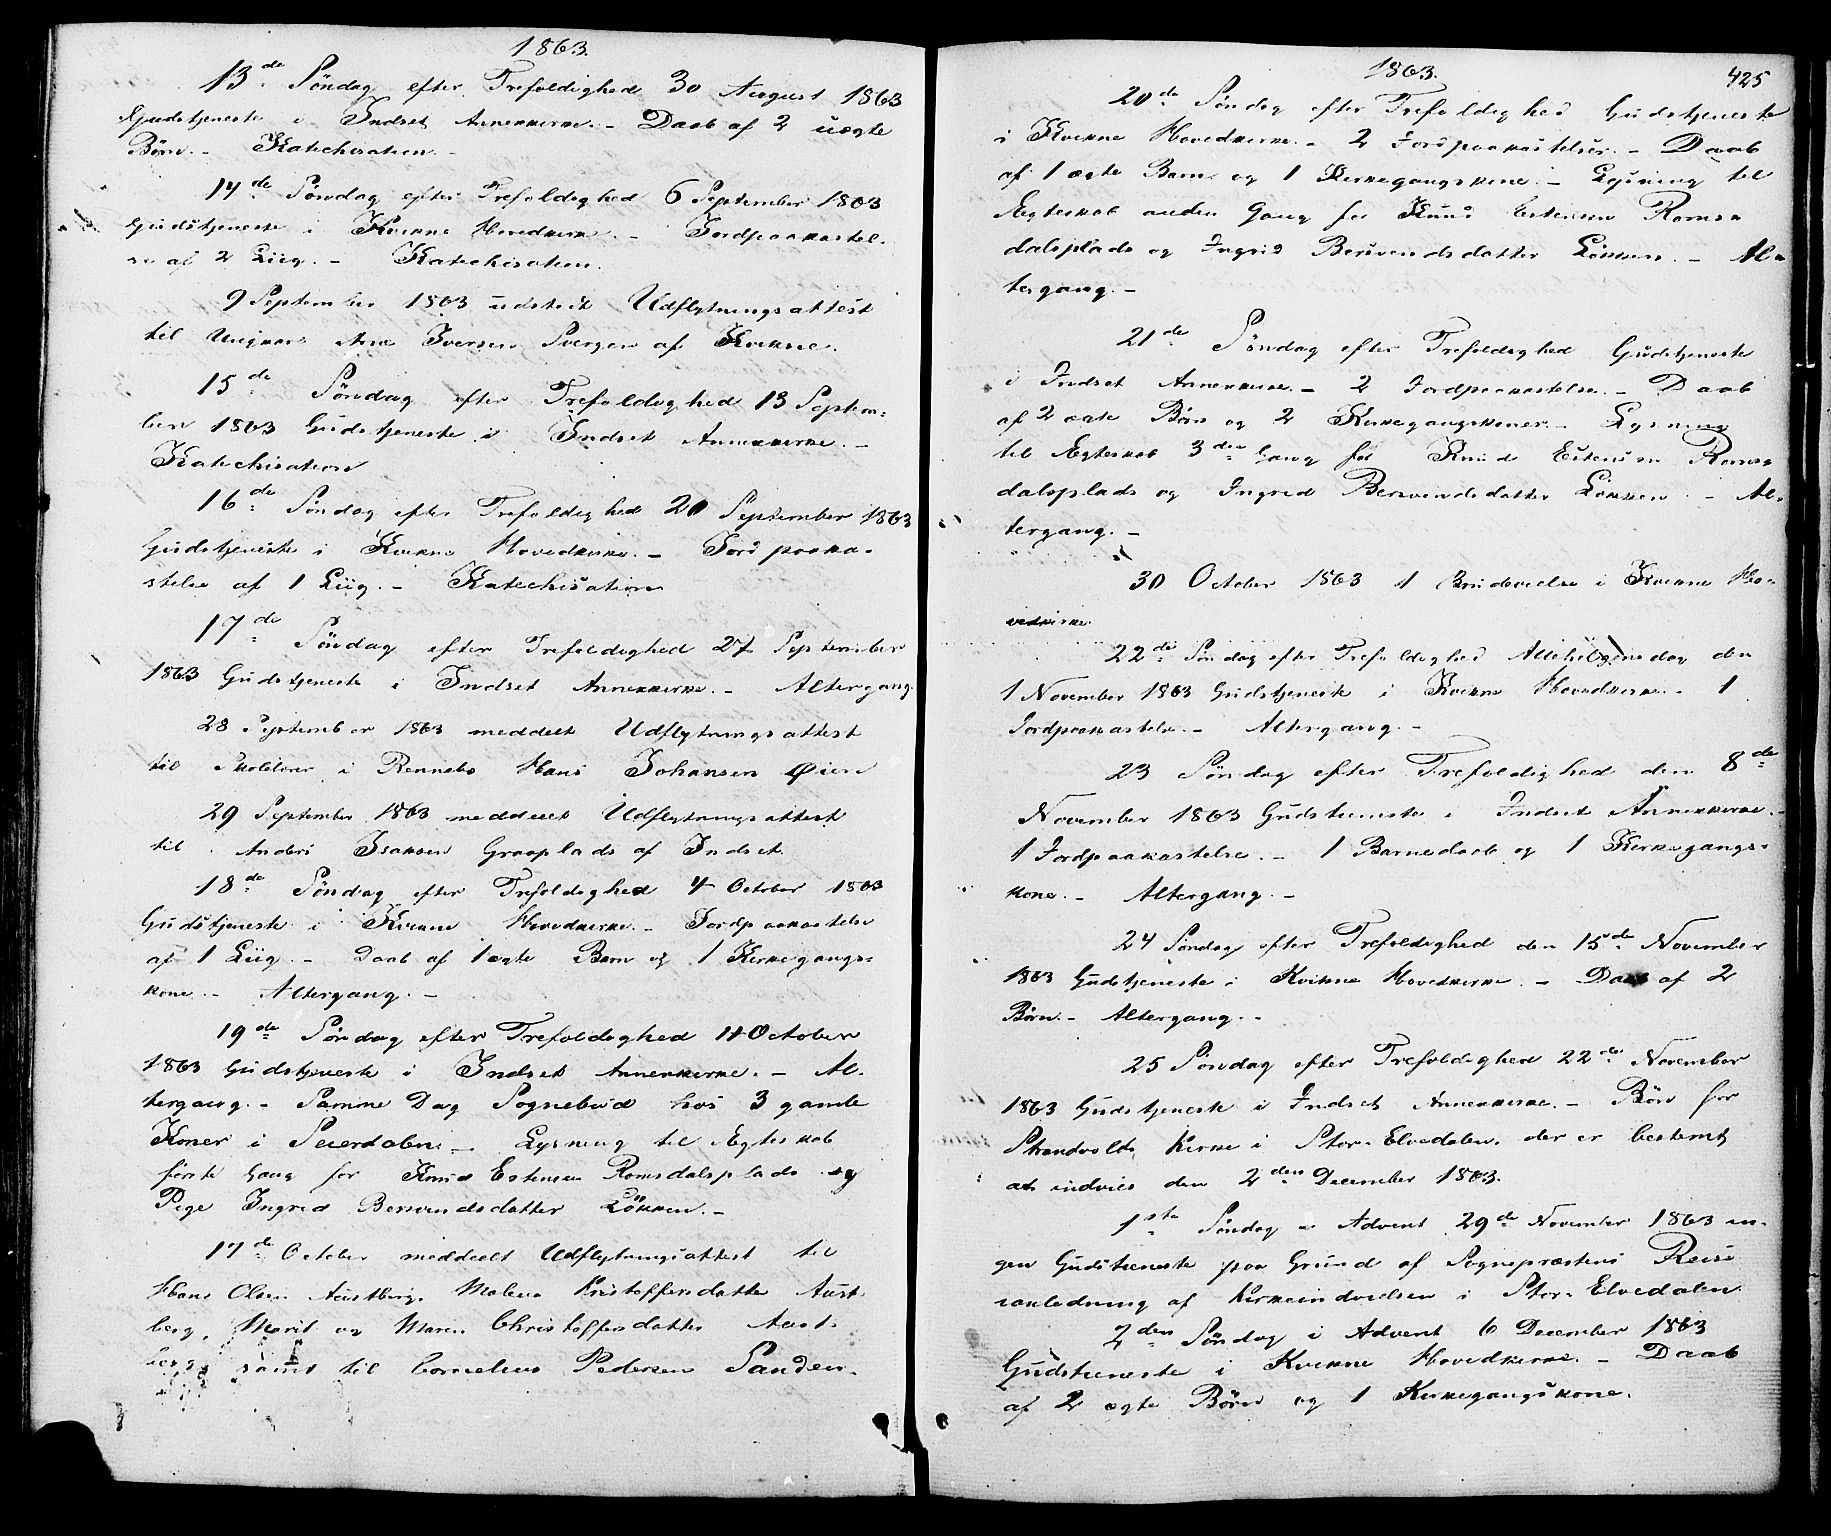 1863.
13de Søndag efter Trefoldighed 30 August 1863
Gudstjeneste i Indset Annexkirke. - Daab af 2 uægte
Børn. - Katechisation. -
14de Søndag efter Trefoldighed 6 September 1863
Gudstjeneste i Kvikne Hovedkirke. - Jordpaakastel-
se af 2 Liig. - Katechisation.
9 September 1863 udstedt Udflytningsattest
til Ungkarl Arne Iversen Svergen af Kvikne.
15de Søndag efter Trefoldighed 13 Septem-
ber 1863 Gudstjeneste i Indset Annexkirke. -
Katechisation
16de Søndag efter Trefoldighed 20 September 1863
Gudstjeneste i Kvikne Hovedkirke. - Jordpaaka-
stelse af 1 Liig. - Katechisation
17de Søndag efter Trefoldighed 27 September
1863 Gudstjeneste i Indset Annexkirke. - Altergang.
28 September 1863 meddelt Udflytningsattest
til Skolelærer i Rennebo Hans Johansen Øien
29 September 1863 meddelt Udflytningsattest
til Anders Isaksen Graaplads af Indset.
18de Søndag efter Trefoldighed 4 October 1863
Gudstjeneste i Kvikne Hovedkirke. - Jordpaakastelse
af 1 Liig. - Daab af 1 ægte Barn og 1 Kirkegangs-
kone. - Altergang. -
19de Søndag efter Trefoldighed 11 October
1863 Gudstjeneste i Indset Annexkirke. - Al-
tergang. - Samme Dag Sognebud hos 3 gamle
Koner i - Lysning til Ægteskab
første Gang for Knud Estensen Romsdalsplads og
Pige Ingrid Bersvendsdatter Løkken. -
17de October meddeelt Udflytningsattest til
Hans Olsen Austberg, Malena Kristoffersdatter Aust-
berg, Marit og Maren Christoffersdatter Aust-
berg, samt til Cornelius Pedersen Sanden.
1863.
425
20de Søndag efter Trefoldighed Gudstjeneste
i Kvikne Hovedkirke. - 2 Jordpaakastelser. - Daab
af 1 ægte Barn og 1 Kirkegangskone. - Lysning til
Ægteskab anden Gang for Knud Estensen Roms-
dalsplads og Ingrid Bersvendsdatter Løkken. - Al-
tergang. -
21de Søndag efter Trefoldighed Gudstjeneste
i Indset Annexkirke. - 2 Jordpaakastelse. - Daab
af 2 ægte Børn og 2 Kirkegangskoner. - Lysning
til Ægteskab 3die Gang for Knud Estensen Roms-
dalsplads og Ingrid Bersvendsdatter Løkken. - Al-
tergang. -
30 October 1863 1 Brudevielse i Kvikne Ho-
vedkirke.
22de Søndag efter Trefoldighed Allehelgensdag den
1 November 1863 Gudstjeneste i Kvikne Hovedkirke. - 1
Jordpaakastelse. - Altergang. -
23 Søndag efter Trefoldighed den 8de
November 1863 Gudstjeneste i Indset Annexkirke. -
1 Jordpaakastelse. - 1 Barnedaab og 1 Kirkegangs-
kone. - Altergang. -
24 Søndag efter Trefoldighed den 15de November
1863 Gudstjeneste i Kvikne Hovedkirke. - Daab af 2
Børn. - Altergang. -
25 Søndag efter Trefoldighed 22de November
1863 Gudstjeneste i Indset Annexkirke. - Bøn for
Strandvolds Kirke i Stor-Elvedalen, der er bestemt
at indvies den 2den December 1863.
1ste Søndag i Advent 29de November 1863 in-
gen Gudstjeneste paa Grund af Sognepræstens Reise
i anledning af Kirkeindvielsen i Stor-Elvedalen.
2den Søndag i Advent 6 December 1863
Gudstjeneste i Kvikne Hovedkirke. - Daab
af 2 ægte Børn og 1 Kirkegangskone.